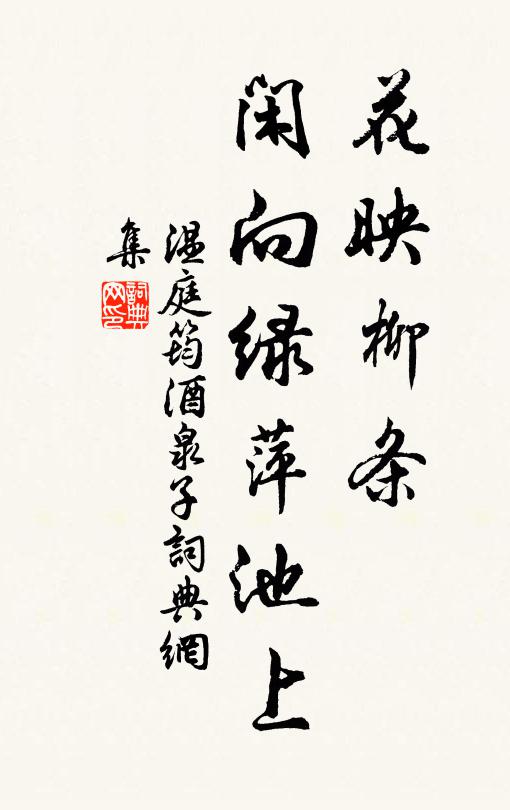 花映柳条
闲向绿萍池上
温庭筠酒泉子詞典網
集
詞典
网印